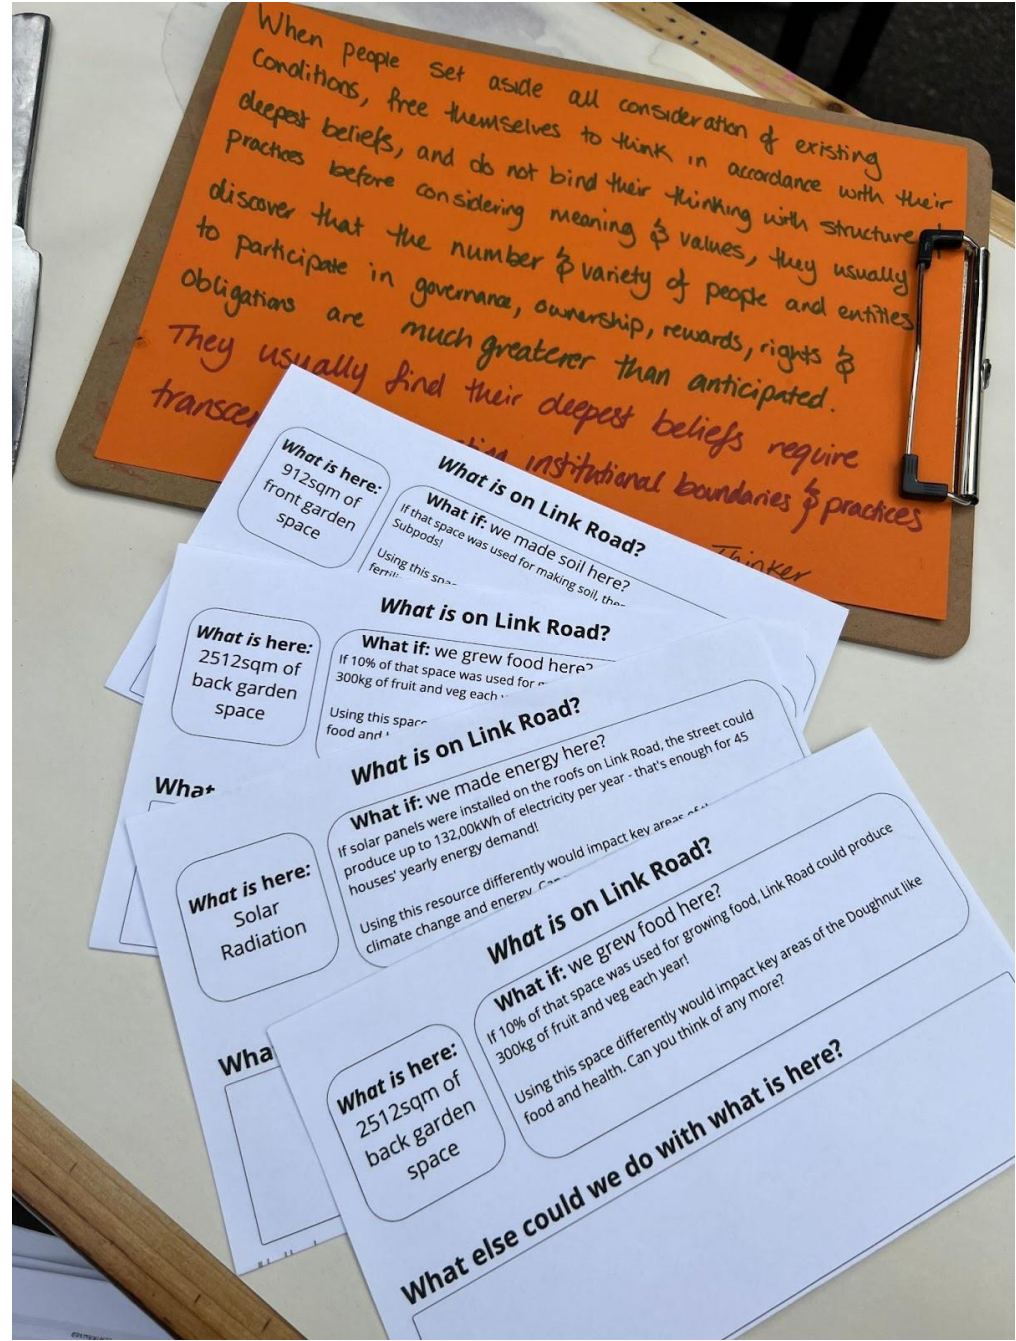 When people set aside all consideration of existing
Conditions, free themselves to think in accordance with their
deepest beliefs, and do not bind their thinking with structure
practices before considering meaning & values, they usually
discover that the number & variety of people and entities
to participate in governance, ownership, rewards, rights &
Obligations are much greaterer than anticipated.
They usually find their deepest beliefs require
institutional boundaries & practices
Thinker
What is on Link Road?
What is here:
912sqm of
front garden
space
What if: we made soil here?
If that space was used for making soil,
Subpods!
Using this
What is on Link Road?
What is here:
2512sqm of
back garden
space
What if: we grew food here?
If 10% of that space was used for
300kg of fruit and veg each
Using this space
food and
What
What is on Link Road?
What is here:
Solar
Radiation
What if: we made energy here?
If solar panels were installed on the roofs on Link Road, the street could
produce up to 132,00kWh of electricity per year - that's enough for 45
houses' yearly energy demand!
Using this resource differently would impact key areas
climate change and energy.
Wha
What is on Link Road?
What is here:
2512sqm of
back garden
space
What if: we grew food here?
If 10% of that space was used for growing food, Link Road could produce
300kg of fruit and veg each year!
Using this space differently would impact key areas of the Doughnut like
food and health. Can you think of any more?
What else could we do with what is here?